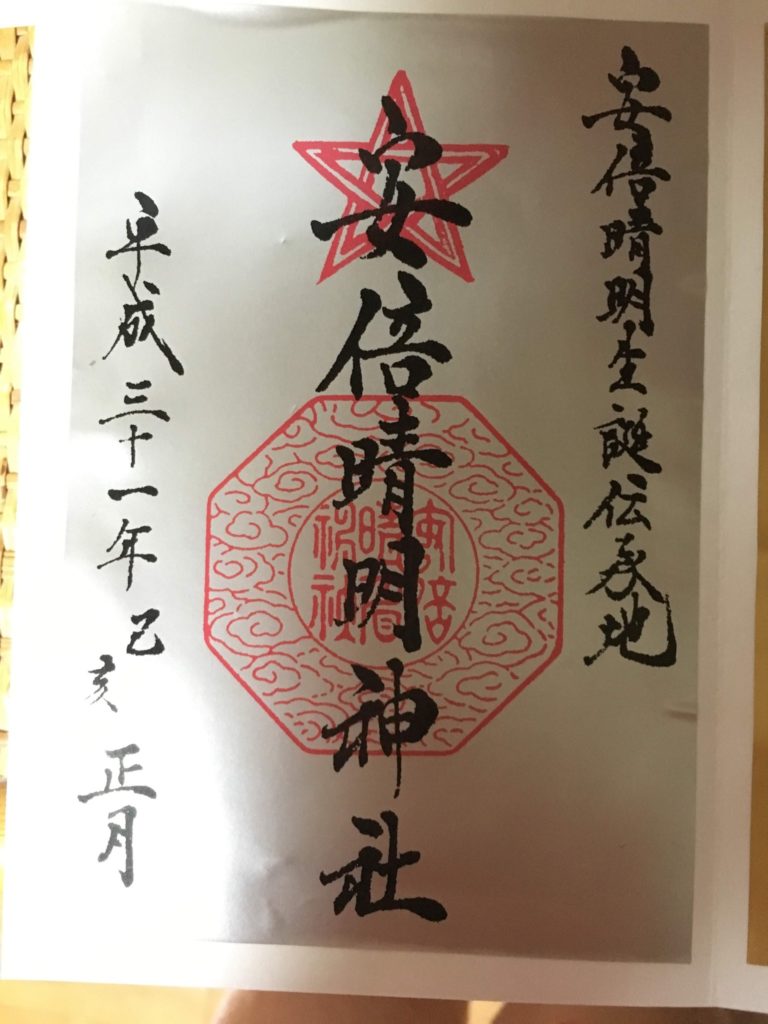 安倍晴明生誕伝承地
安倍晴明神社
安倍晴明神社
平成三十一年己亥正月